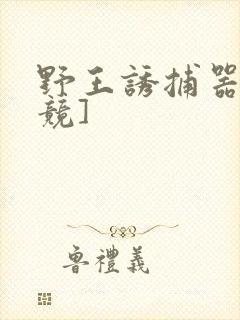 野王誘捕器
競]
魯禮義